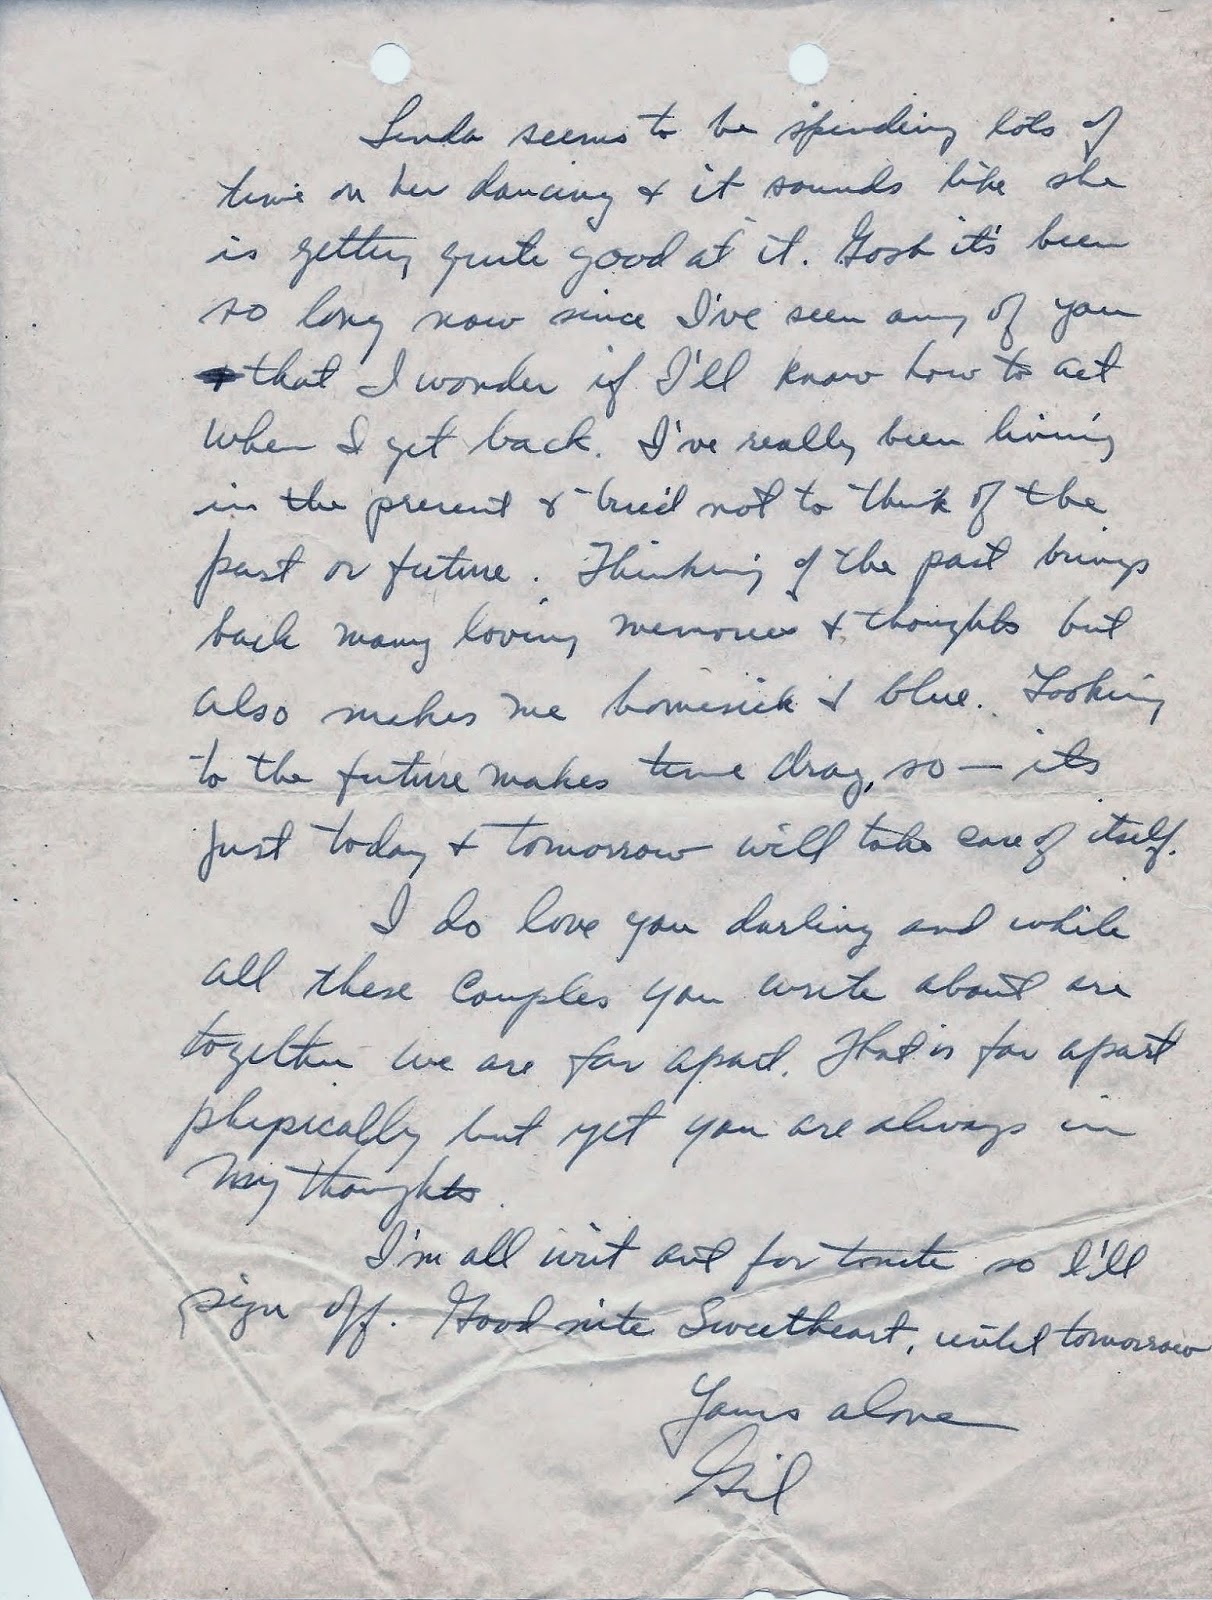 Linda seems to be spending lots of
time on her dancing & it sounds like she
is getting quite good at it. Gosh it's been
so long now since I've seen any of you
that I wonder if I'll know how to act
when I get back. I've really been living
in the present & tried not to think of the
past or future. Thinking of the past brings
back many loving memories & thoughts but
also makes me homesick & blue. Looking
to the future makes time drag, so — its
just today & tomorrow will take care of itself.
I do love you darling and while
all these couples you write about are
together we are far apart. That is far apart
physically but yet you are always in
my thoughts.
I'm all writ out for tonite so I'll
sign off. Good nite Sweetheart, until tomorrow
Yours alone
Gil